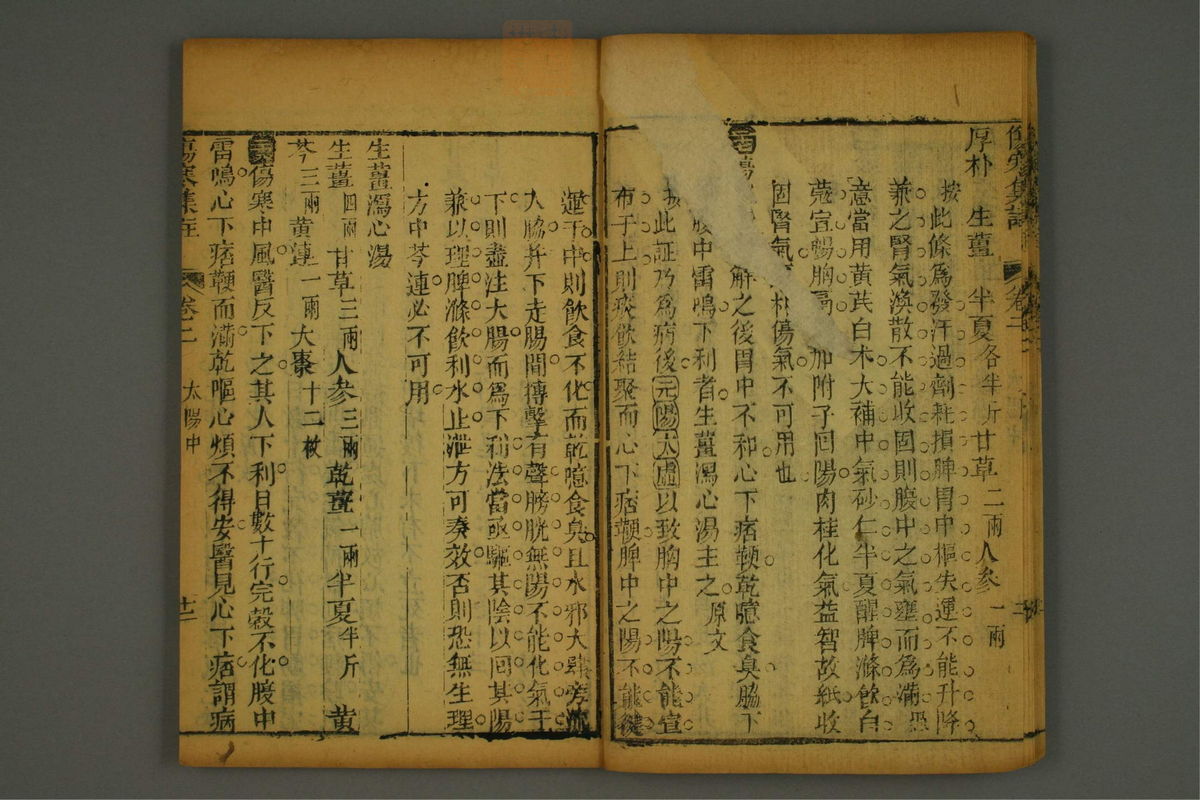 厚朴 生薑 半夏各半斤 甘草二兩 人參一兩
按此條為發汗過劑耗損脾胃中樞失運不能升降
兼之腎氣渙散不能收固則腹中之氣壅而為滿愚
意當用黃芪白朮大補中氣砂仁半夏醒脾滌飲白
蔻宣暢胸膈 加附子回陽肉桂化氣益智故紙收
固腎氣 朴傷氣不可用也
傷 解之後胃中不和心下痞鞕乾噫食臭脇下
腹中雷鳴下利者生薑瀉心湯主之原文
按此証乃為病後元陽大虛以致胸中之陽不能宣
布于上則痰飲結聚而心下痞鞕脾中之陽不能健
運于中則飲食不化而乾噫食臭且水邪大肆旁流
入脇并下走腸間摶擊有聲膀胱無陽不能化氣于
下則盡注大腸而為下利法當亟驅其陰以回其陽
兼以理脾滌飲利水止泄方可奏效否則恐無生理
方中芩連必不可用
生薑瀉心湯
生薑四兩 甘草三兩 人參三兩 乾薑一兩 半夏半斤 黃
芩三兩 黃連一兩 大棗十二枚
傷寒中風醫反下之其人下利日數十行完穀不化腹中
雷鳴心下痞鞕而滿乾嘔心煩不得安醫見心下痞謂病
傷寒集註 卷二 太陽中